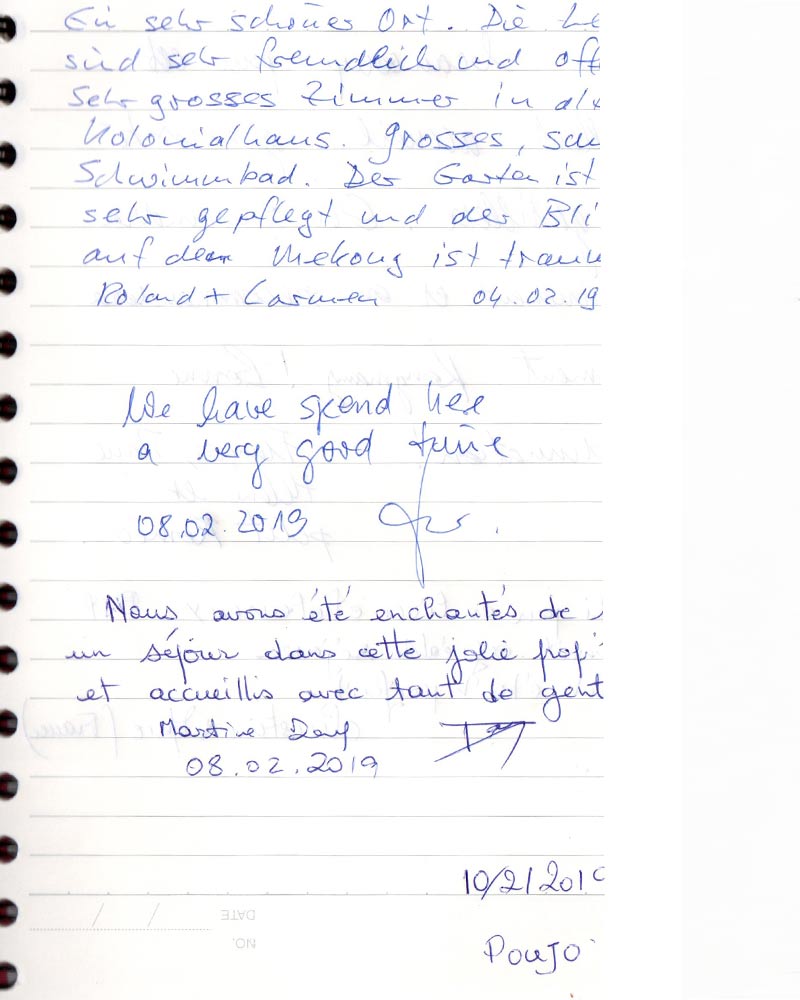 Ein sehr schönes Ort. Die Le
sind sehr freundlich und off
Sehr grosses Zimmer in alt
Kolonialhaus. Grosses, sau
Schwimmbad. Der Garten ist
sehr gepflegt und der Bli
auf den Mekong ist traum
Roland + Carmen 04.02.19
We have spend here
a very good time
08.02.2019
Nous avons été enchantés de
un séjour dans cette jolie prop
et accueillis avec tant de gent
Martine
08.02.2019
10/2/2019
DATE
NO.
Poujo